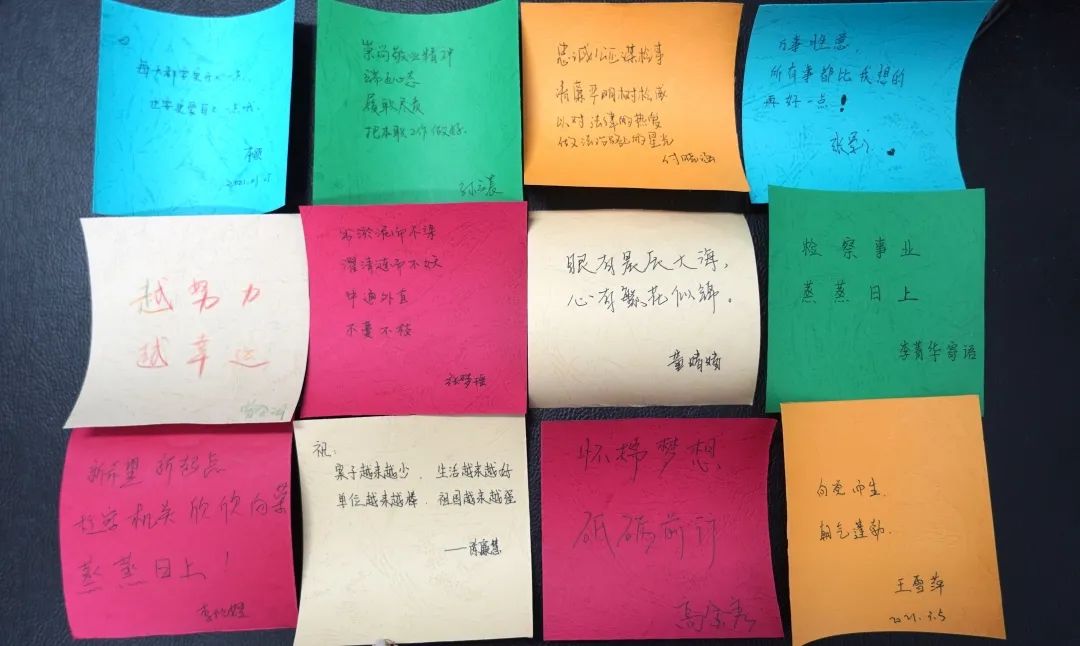 每天都要更好一点,
也要更爱自己一点哦.
崇尚敬业精神
端正心态
履职尽责
把本职工作做好.
忠诚公正谋检事
清廉严明树检威
以对法律的热爱
做法治路上的星光
万事胜意,
所有事都比我想的
再好一点!
越努力
越幸运
出淤泥而不染
濯清涟而不妖
中通外直
不蔓不枝
眼有星辰大海,
心有繁花似锦。
董婧婧
检察事业
蒸蒸日上
李菁华寄语
新希望 新起点
检察机关欣欣向荣
蒸蒸日上!
祝:
案子越来越少, 生活越来越好
单位越来越棒, 祖国越来越强
怀揣梦想,
砥砺前行
向爱而生,
朝气蓬勃.
王雪萍
2021.3.5